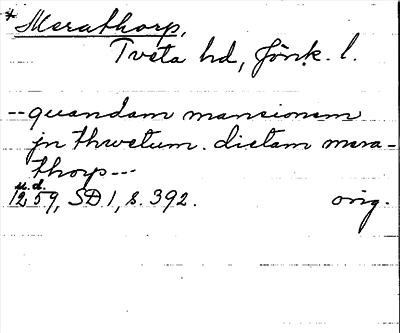 *Merathorp,
Tveta hd, Jönk. l.
--quandam mansionem
jn thwetum. dictam mera-
thorp---
u.d.
1259, SD 1, s. 392. orig.